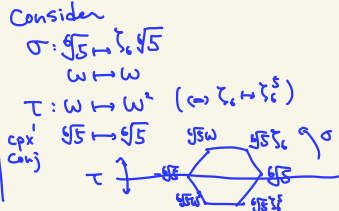 Consider
σ: ⁶√5 ↦ ζ₆ ⁶√5
ω ↦ ω
τ: ω ↦ ω² (⇔ ζ₆ ↦ ζ₆⁵)
cpx conj
⁶√5 ↦ ⁶√5
⁶√5ω ⁶√5ζ₆ σ
τ -⁶√5 ⁶√5
⁶√5ω² ⁶√5ζ₆⁵